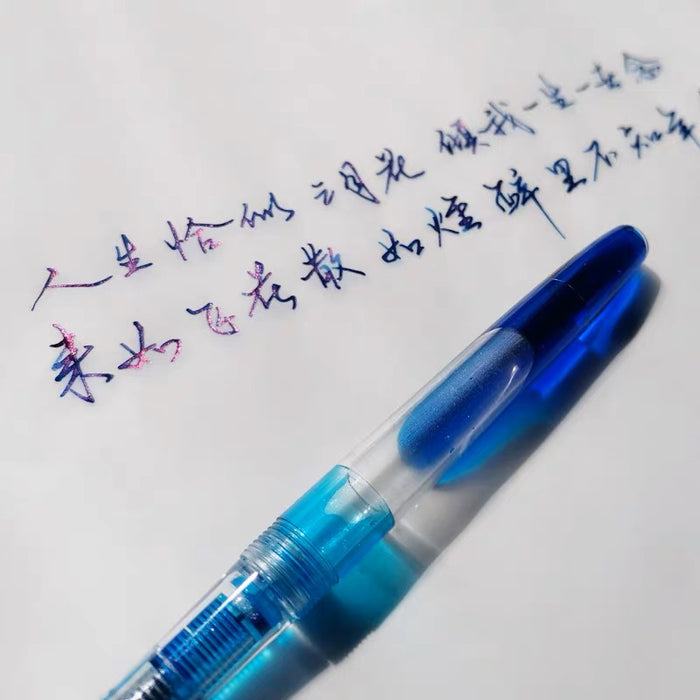 人生恰似三月花 倾我一生一世念
来如飞花散如烟 醉里不知年